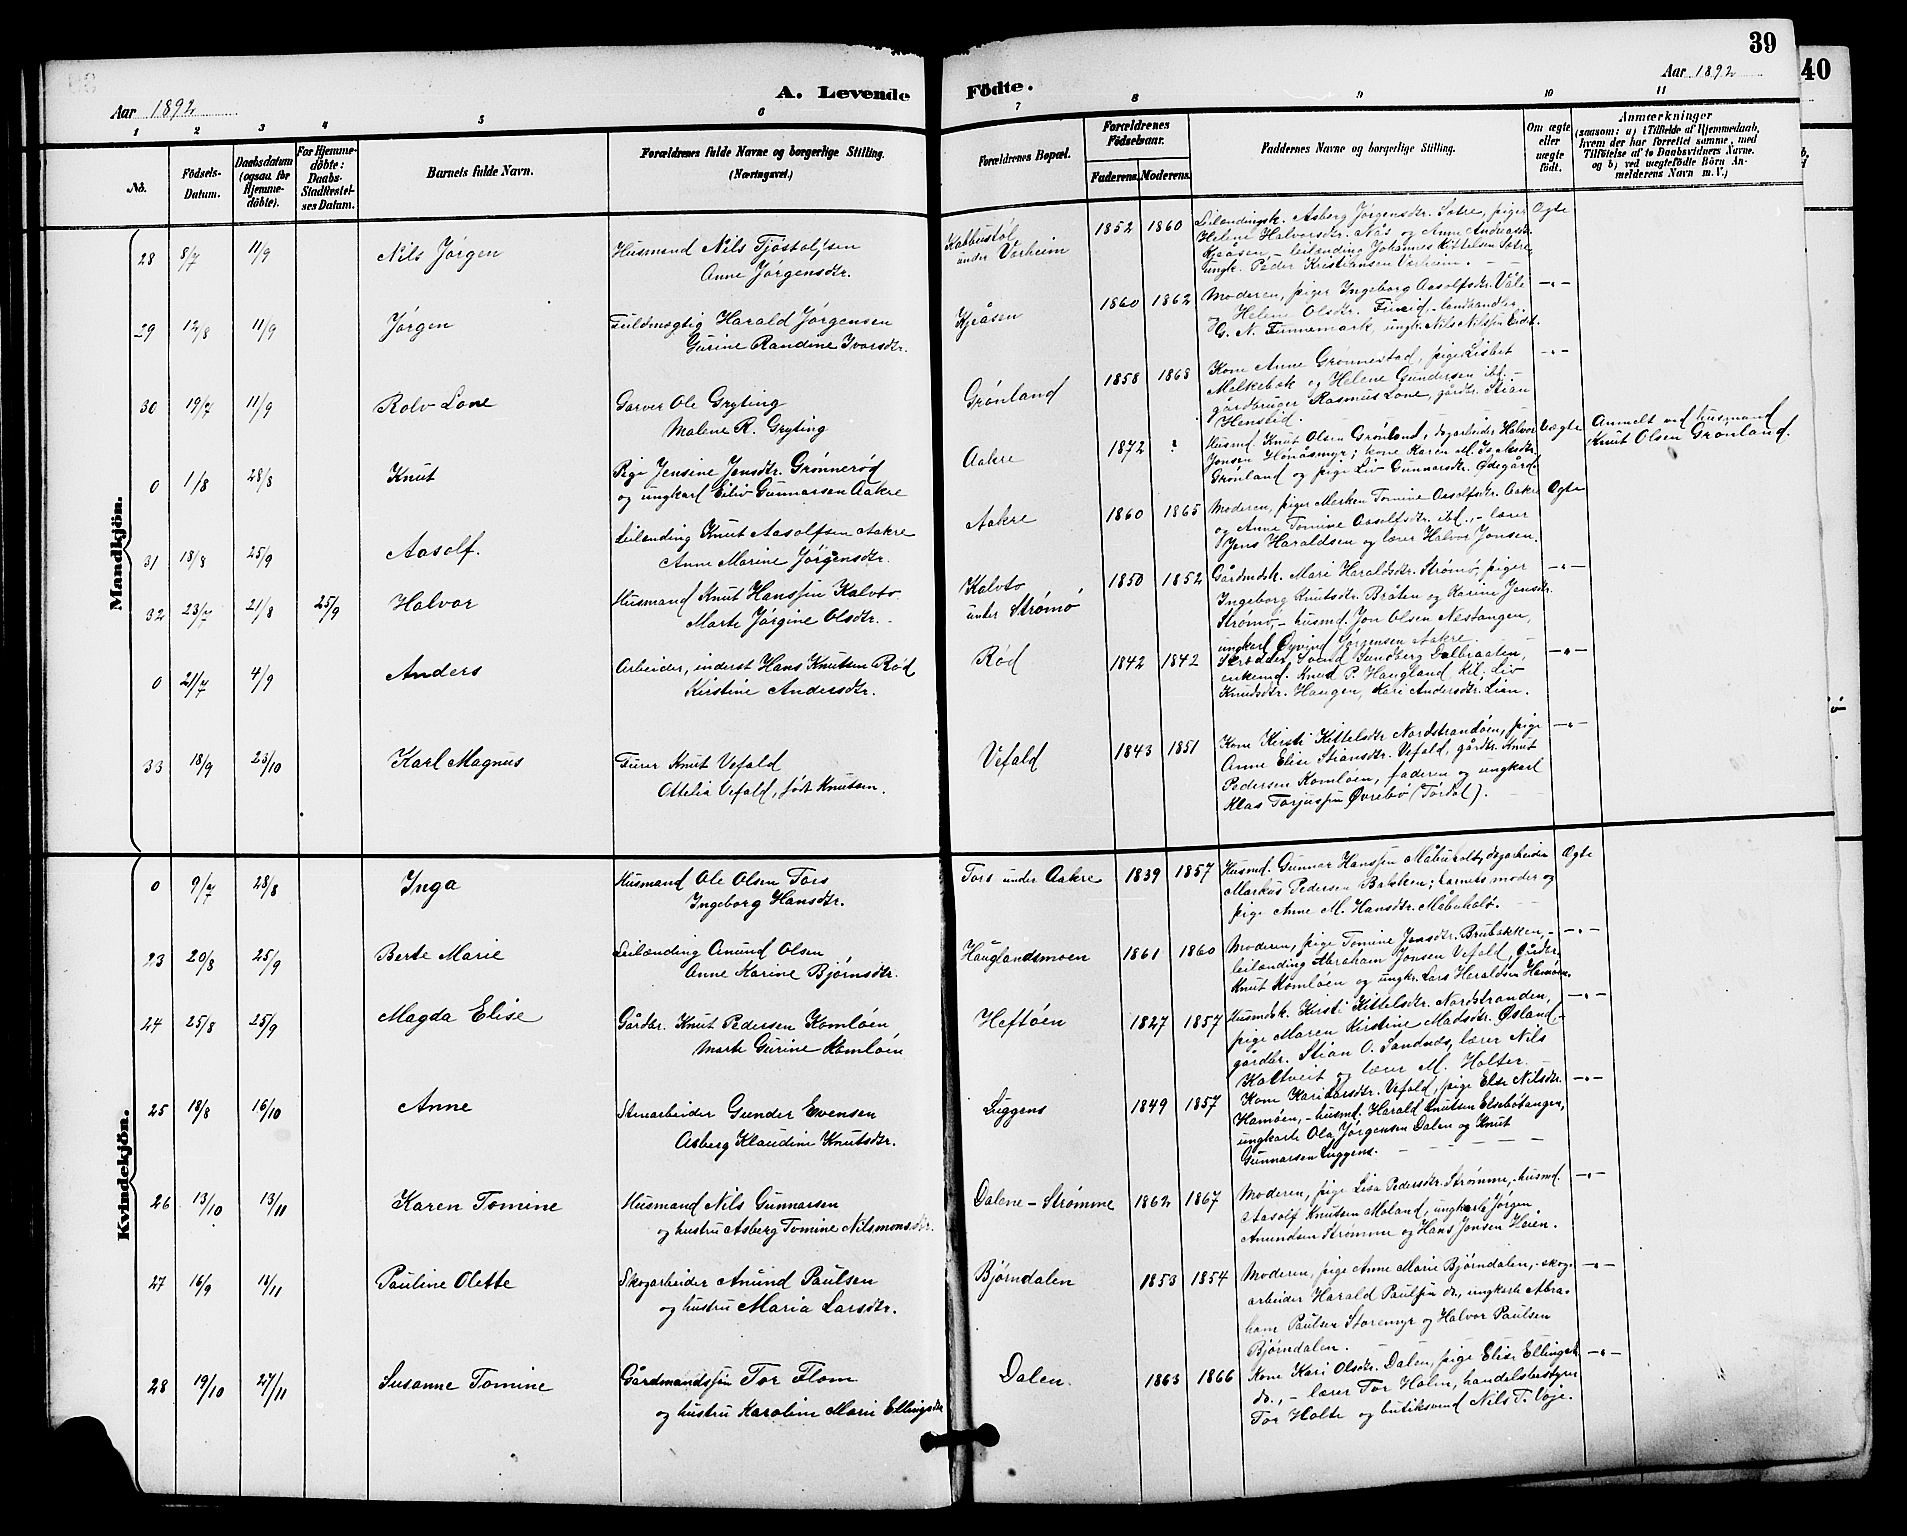 39
40
Aar 1892
A. Levende Fødte.
Aar 1892
1 2 3 4 5 6 7 8 9 10 11
No.
Fødsels-
Datum.
Daabsdatum
(ogsaa for
Hjemme-
døbte).
For Hjemme-
døbte:
Daabs-
Stadfæstel-
ses Datum.
Barnets fulde Navn.
Forældrenes fulde Navne og borgerlige Stilling.
(Næringsvei.)
Forældrenes Bopæl.
Forældrenes
Fødselsaar.
Faderens. Moderens.
Faddernes Navne og borgerlige Stilling.
Om ægte
eller
uægte
født.
Anmærkninger
(saasom: a) i Tilfælde af Hjemmedaab,
hvem der har forrettet samme, med
Tilføielse af to Daabsvidners Navne.
og b) ved uegtefødte Børn An-
melderens Navn m. V.)
Mandkjön.
28 8/7 11/9 Nils Jørgen
Husmand Nils Tjøstolfsen
Anne Jørgensdtr.
under Vorheim
1852 1860
Leilændingsk. Asberg Jørgensdtr. Sætre, piger
Helene Halvorsdtr. Nås og Anne Andreasdtr.
Kjåsen, - leilending Johannes Kittelsen Sætre,
ungk. Peder Kristiansen Verheim.
Ægte
29 12/8 11/9 Jørgen
Fuldmægtig Harald Jørgensen
Gurine Randine Ivarsdtr.
Kjåsen
1860 1862
Moderen, piger Ingeborg Aasolfsdtr. Våle
og Helene Olsdtr. Fineid, - landhandler
G. N. Finnemark, ungk. Nils Nilssen Eidet.
-"-
30 19/7 11/9 Rolv Lone
Garver Ole Gryting
Malene R. Gryting
Grønland
1858 1868
Kone Anne Grønnestad, pige Lisbet
Melkebæk og Helene Gundersen ibd. -
gårdbruger Rasmus Lone, gårdbr. Stian
Henseid.
-"-
0 1/8 28/8 Knut
Pige Jensine Jensdtr. Grønnerød
og ungkarl Eiliv Gunnarsen Aakre
Aakre
1872 ?
Husmd. Knut Olsen Grønland, dagarbeider Halvor
Jonsen Hønåsmyr; kone Karen M. Isaksdtr.
Grønland og pige Liv Gunnarsdtr. Ødegård.
Uægte
Anmelt ved husmand
Knut Olsen Grønland.
31 18/8 25/9 Aasolf.
Leilænding Knut Aasolfsen Aakre
Anne Marine Jørgensdtr.
Aakre
1860 1865
Moderen, piger Merken Tomine Aasolfsdtr. Aakre
og Anne Tomine Aasolfsdtr. ibd., - lærer
Jens Haraldsen og lærer Halvor Jonsen.
Ægte
32 23/7 21/8 25/9 Halvor
Husmand Knut Hanssen Kalvto
Marte Jørgine Olsdtr.
Kalvto
under Strømø
1850 1852
Gårdmdsk. Mari Haraldsdtr. Strømø, piger
Ingeborg Knutsdtr. Bråten og Karine Jensdtr.
Strømø, - husmd. Jon Olsen Nestangen,
ungkarl Øyvind Jørgensen Aakre.
-"-
0 21/7 4/9 Anders
Arbeider, inderst Hans Knutsen Rød
Kirstine Andersdtr.
Rød
1842 1842
Skrædder Svend Sundberg Dalbraaten,
enkemd. Knud P. Haugland, Liv
Knudsdtr. Haugen, Kari Andersdtr. Lian.
-"-
33 18/9 23/10 Karl Magnus
Furer Knut Vefald
Ottelia Vefald, født Knutsen.
Vefald
1843 1851
Kone Kirsti Kittelsdtr. Nordstrandøen, pige
Anne Elise Stiansdtr. Vefald, gårdbr. Knut
Pedersen Komløen, faderen og ungkarl
Klas Torjussen Øvrebø (Tørdal).
-"-
Kvindekjön.
0 9/7 28/8 Inga
Husmand Ole Olsen Tors
Ingeborg Hansdtr.
Tors under Aakre
1839 1857
Husmd. Gunnar Hanssen Måbuholt, dagarbeider
Markus Pedersen Bakken; barnets moder og
pige Anne M. Hansdtr. Måbuholt.
Ægte
23 20/8 25/9 Berte Marie
Leilænding Amund Olsen
Anne Karine Bjørnsdtr.
Hauglandsmoen
1861 1860
Moderen, pige Tomine Jonsdtr. Brubakken, -
leilænding Abraham Jonsen Vefald, gårdbr.
Knut Komløen og ungkr. Lars Heraldsen Hamøen.
-"-
24 25/8 25/9 Magda Elise
Gårdbr. Knut Pedersen Komløen
Marte Gurine Komløen
Heftøen
1827 1857
Husmdsk. Kirsti Kittelsdtr. Nordstranden,
pige Maren Kirstine Madsdtr. Øsland, -
gårdbr. Stian O. Sandnes, lærer Nils
Kaltveit og lærer M. Holter.
-"-
25 18/8 16/10 Anne
Stenarbeider Gunder Evensen
Asberg Klaudine Knutsdtr.
Luggens
1849 1857
Kone Kari Larsdtr. Vefald, pige Else Nilsdtr.
Hamøen, - husmd. Harald Knutsen Elsebøtangen,
ungkarle Ola Jørgensen Dalen og Knut
Gunnarsen Luggens.
-"-
26 13/10 13/11 Karen Tomine
Husmand Nils Gunnarsen
og hustru Asberg Tomine Nilsmonsdtr.
Dalene - Strømme
1862 1867
Moderen, pige Lisa Pedersdtr. Strømme, - husmd.
Aasolf Knutsen Moland, ungkarle Jørgen
Amundsen Strømme og Hans Jonsen Heien.
-"-
27 16/9 13/11 Pauline Olette
Skogarbeider Anund Paulsen
og hustru Maria Larsdtr.
Bjørndalen
1853 1854
Moderen, pige Anne Marie Bjørndalen, - skog-
arbeider Harald Paulsen do, ungkarle Abra-
ham Paulsen Storemyr og Halvor Paulsen
Bjørndalen.
-"-
28 19/10 27/11 Susanne Tomine
Gårdmandssøn Tor Flom
og hustru Karoline Marie Ellingsdtr
Dalen.
1863 1866
Kone Kari Olsdtr. Dalen, pige Elise Ellingsdtr.
do., - lærer Tor Holm, handelsbestyrer
Tor Holte og butiksvend Nils T. Voje.
-"-